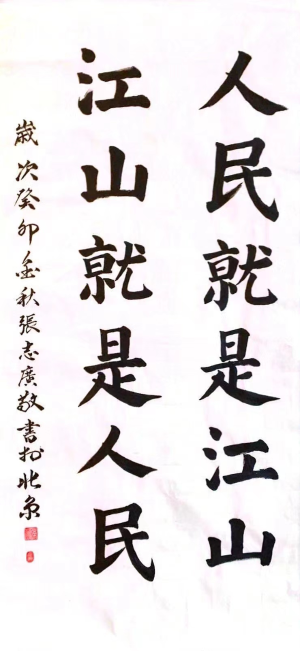 人民就是江山
江山就是人民
歲次癸卯金秋張志廣敬書於北京